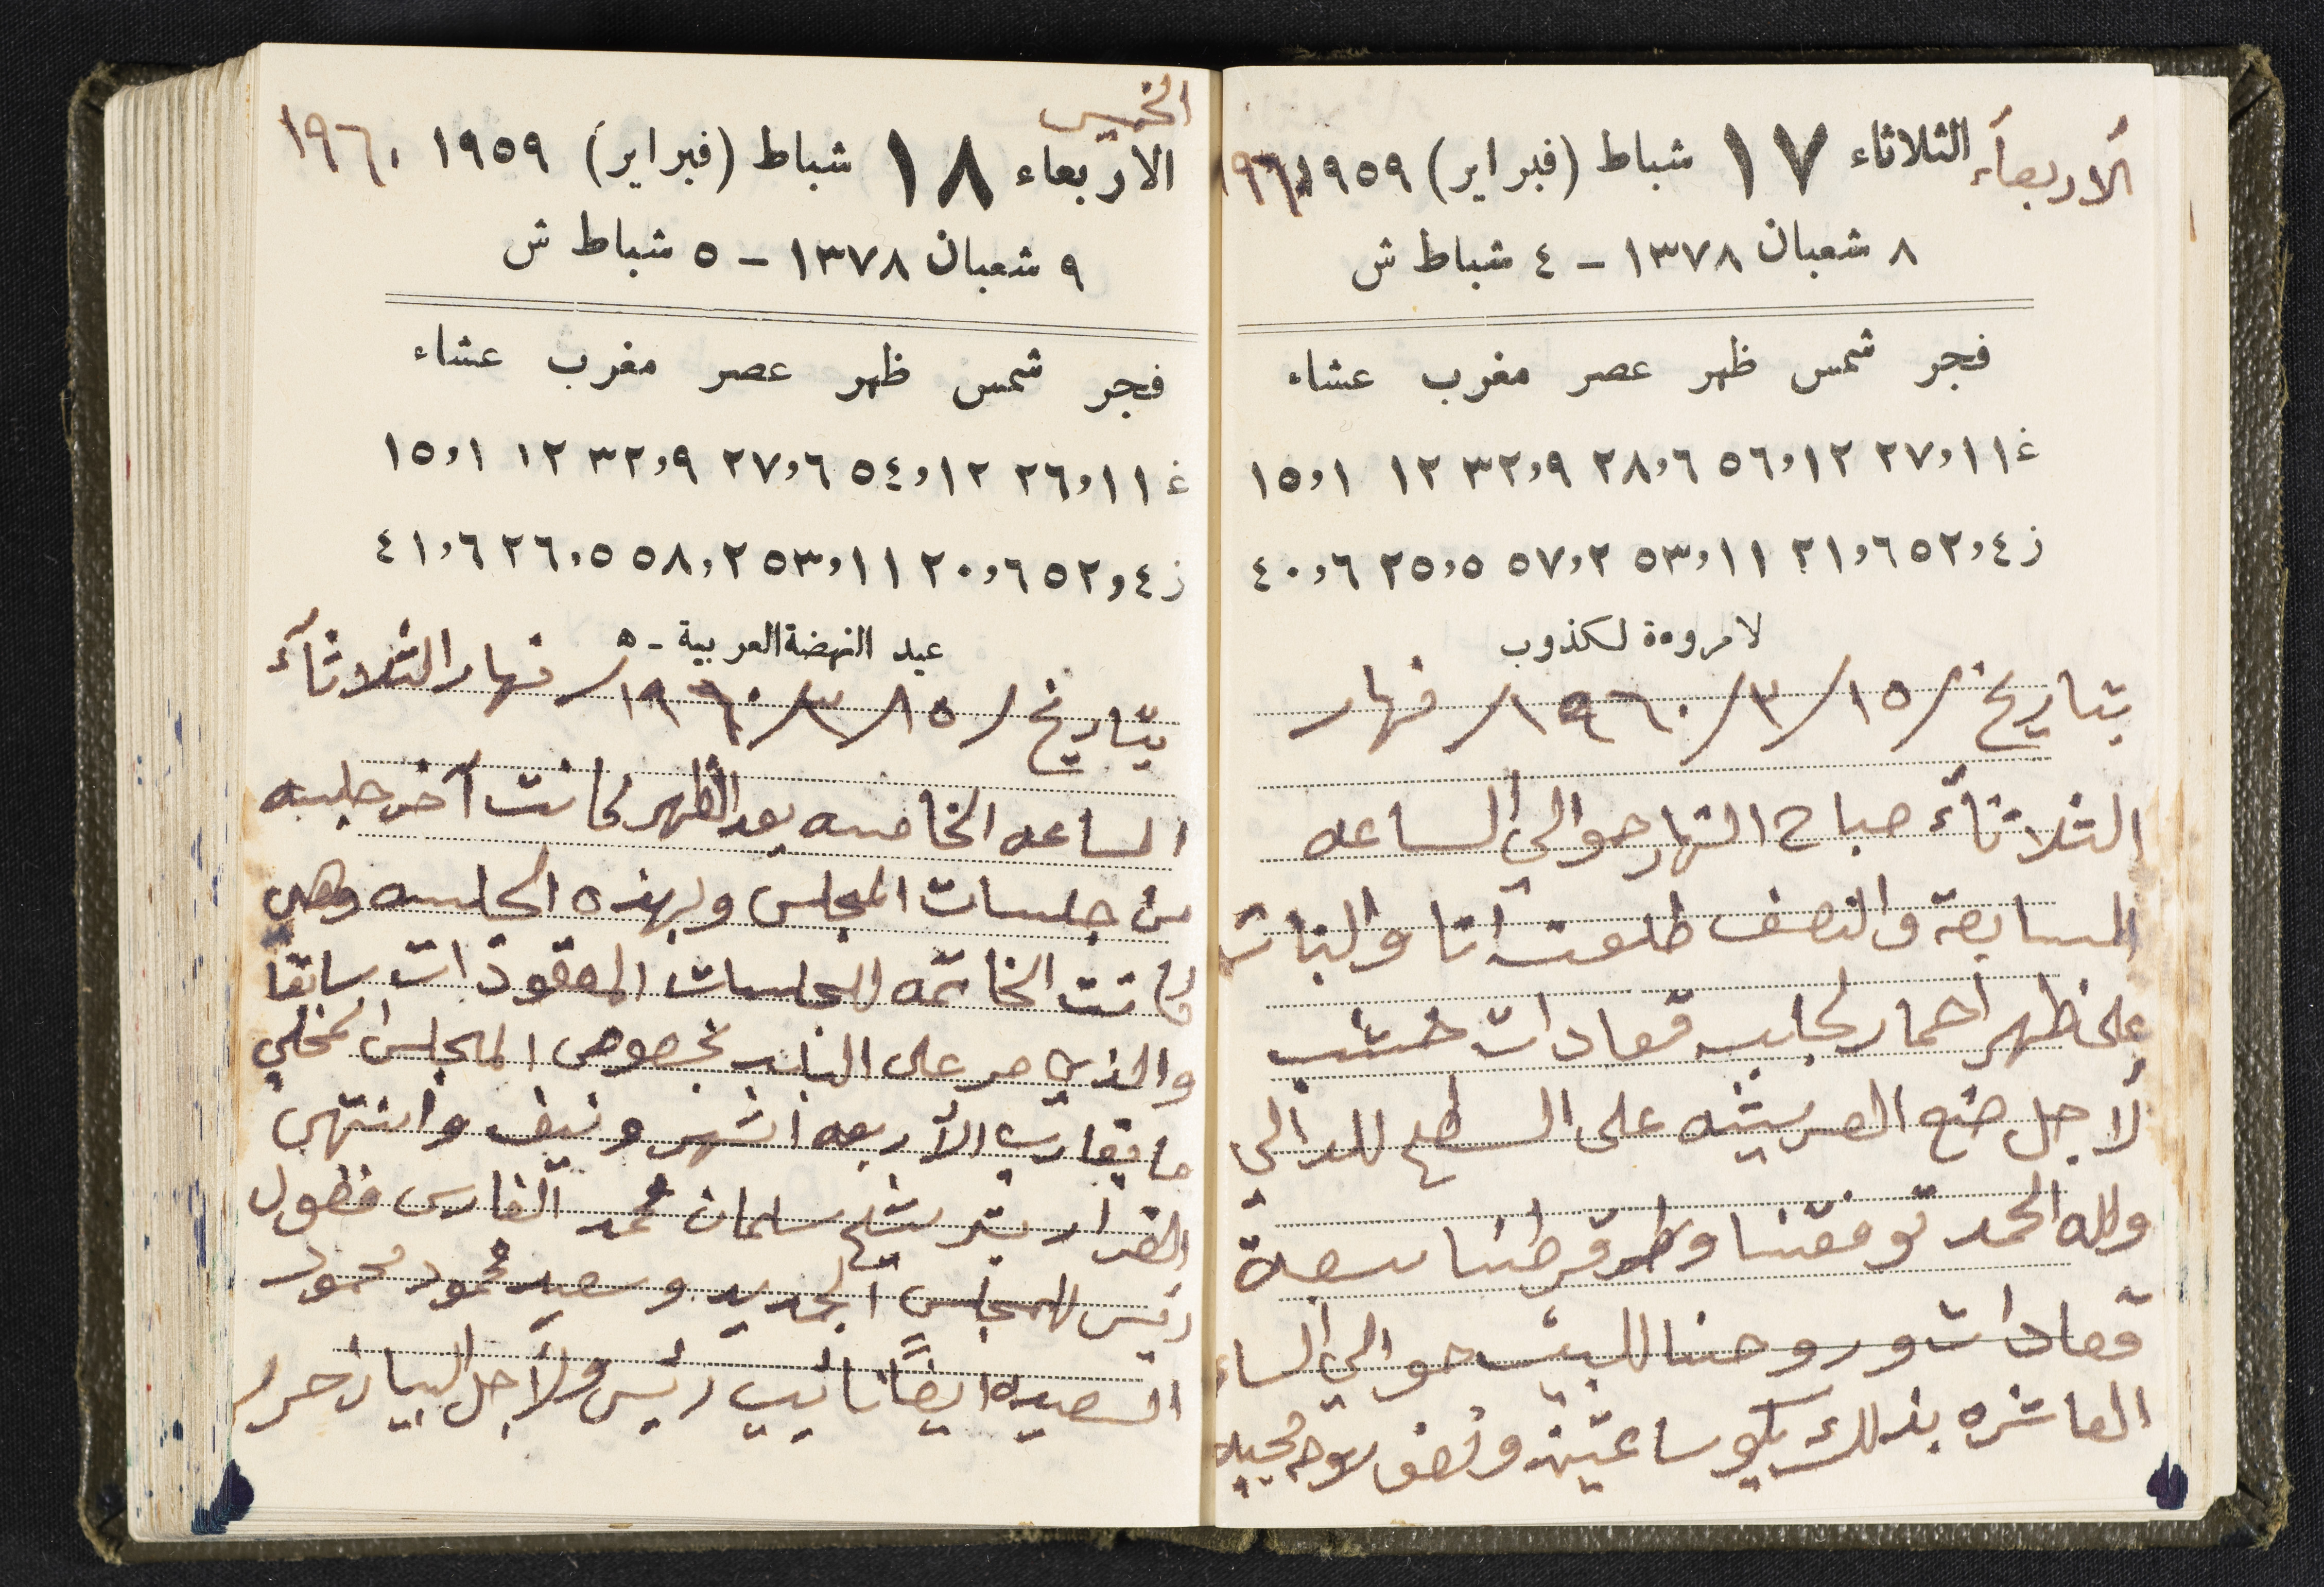 الاربعاء الثلاثاء ١٧ شباط (فبراير) ١٩٥٩ ١٩٦٠
٨ شعبان ١٣٧٨ - ٤ شباط ش
فجر شمس ظهر عصر مغرب عشاء
غ ١١,٢٧ ١٢,٥٦ ٦,٢٨ ٩,٣٢ ١٢ ١,١٥
ز ٤,٥٢ ٦,٢١ ١١,٥٣ ٢,٥٧ ٥,٢٥ ٦,٤٠
لا مروءة لكذوب
بتاريخ / ١٥ / ٣ / ١٩٦٠ / نهار
الثلاثآء صباح النهار حوالي الساعه
السابعة والنصف طلعت انا والبنات
على ظهر احمار لجايب قعادات خشب
لأجل صنع العريشه على السطح للدالي
ولله الحمد توفقنا وطرقطنا سبعة
قعادات وروحنا للبيت حوالي الساع
العاشره بذلك يكو ساعتين ونصف روحه جيه
الخميس
الاربعاء ١٨ شباط (فبراير) ١٩٥٩ ١٩٦٠
٩ شعبان ١٣٧٨ - ٥ شباط ش
فجر شمس ظهر عصر مغرب عشاء
غ ١١,٢٦ ١٢,٥٤ ٦,٢٧ ٩,٣٢ ١٢ ١,١٥
ز ٤,٥٢ ٦,٢٠ ١١,٥٣ ٢,٥٨ ٥,٢٦ ٦,٤١
عيد النهضة العربية - ٥
بتاريخ / ١٥ / ٣ / ١٩٦٠ / نهار الثلاثآء
الساعه الخامسه بعد الظهر كانت آخر جلسه
من جلسات المجلس وبهذه الجلسه وهي
كانت الخاتمه للجلسات المعقوذات سابقا
والذي مر على النايب بخصوص المجلس المحلي
ما يقارب الأربعه اشهر ونيف وانتهى
القرار بترشيح سلمان محمد الفارس فضول
رئيس للمجلس الجديد وسعيد محمود محمود
السعيد ايضاً نائيب رئيس ولأجل البيان حرر